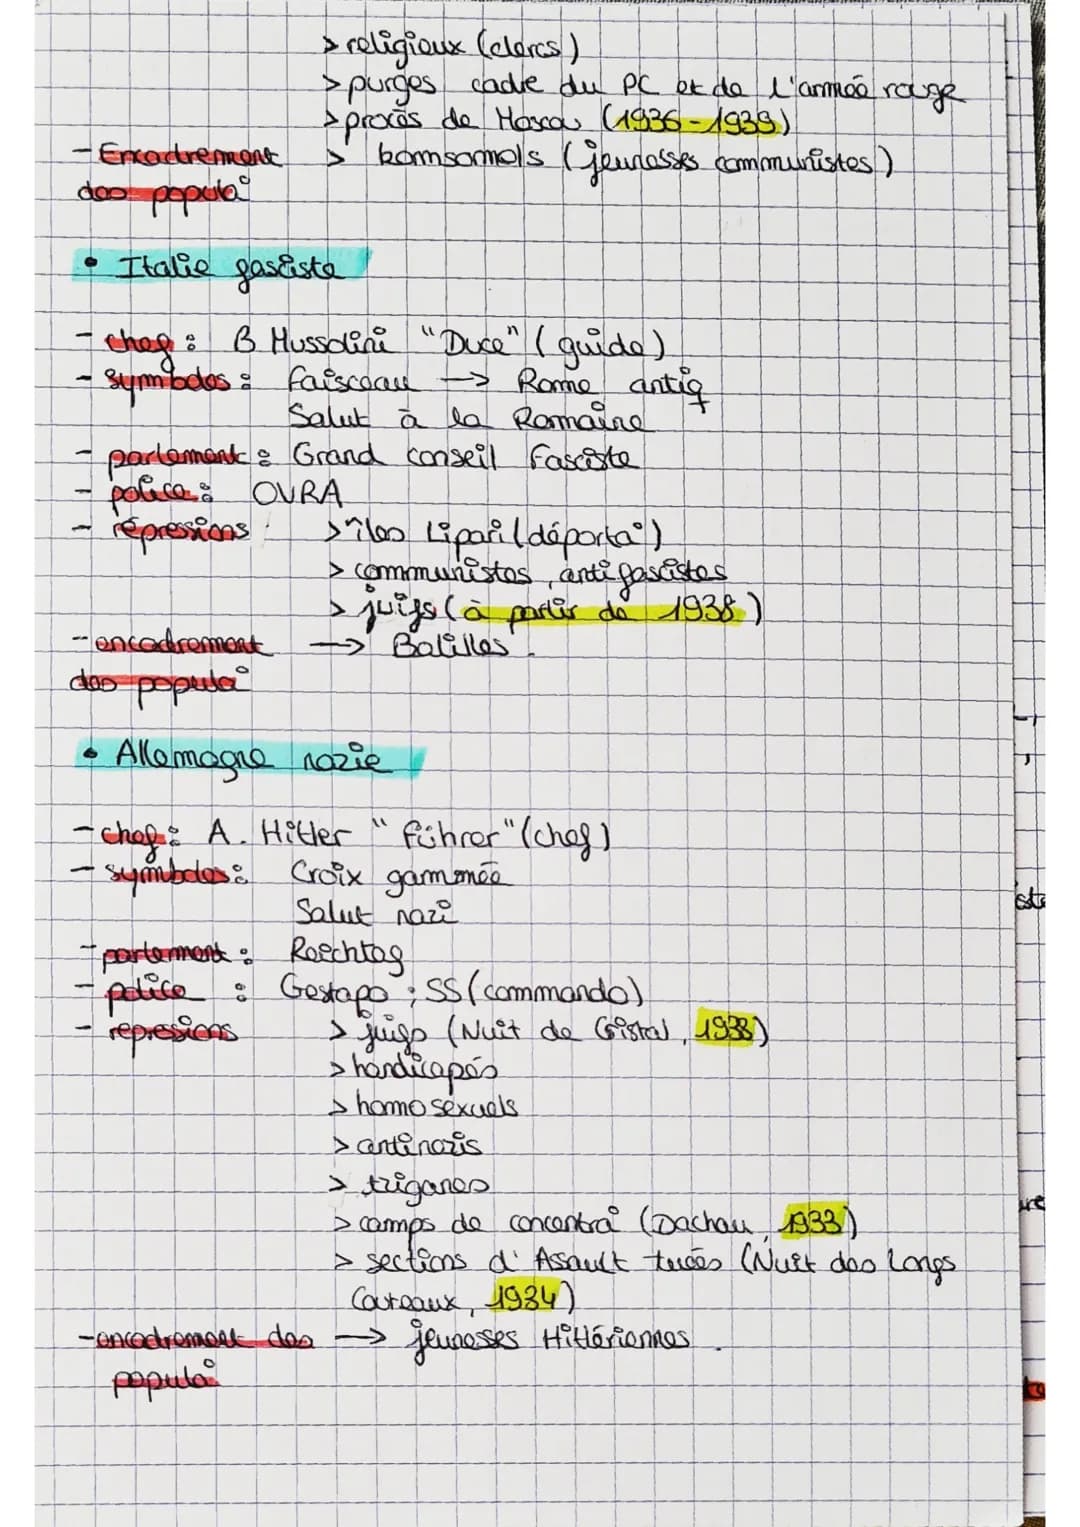 > religieux (clercs)
> purges cadre du PC et de l'armée rouge
> procès de Moscou (1936-1939)
- Encadrement > komsomols (jeunesses communistes)
des popula°
• Italie fasciste
- chef : B Mussolini "Duce" (guide)
- symboles : Faisceau -> Rome antiq
Salut à la Romaine
- parlement : Grand conseil Fasciste
- police : OVRA
- répressions : > îles Lipari (déporta°)
> communistes, antifascistes
> juifs (à partir de 1938)
- encadrement -> Balilles.
des popula°
• Allemagne nazie
- chef : A. Hitler "Führer" (chef)
- symboles : Croix gammée
Salut nazi
- parlement : Reichtag
- police : Gestapo ; SS (commando)
- repressions > juifs (Nuit de Cristal, 1938)
> handicapés
> homosexuels
> antinazis
> tziganes
> camps de concentra° (Dachau, 1933)
> sections d'Asault tuées (Nuit des Longs
Couteaux, 1934)
- encadrement des -> jeunesses Hitlériennes.
popula°